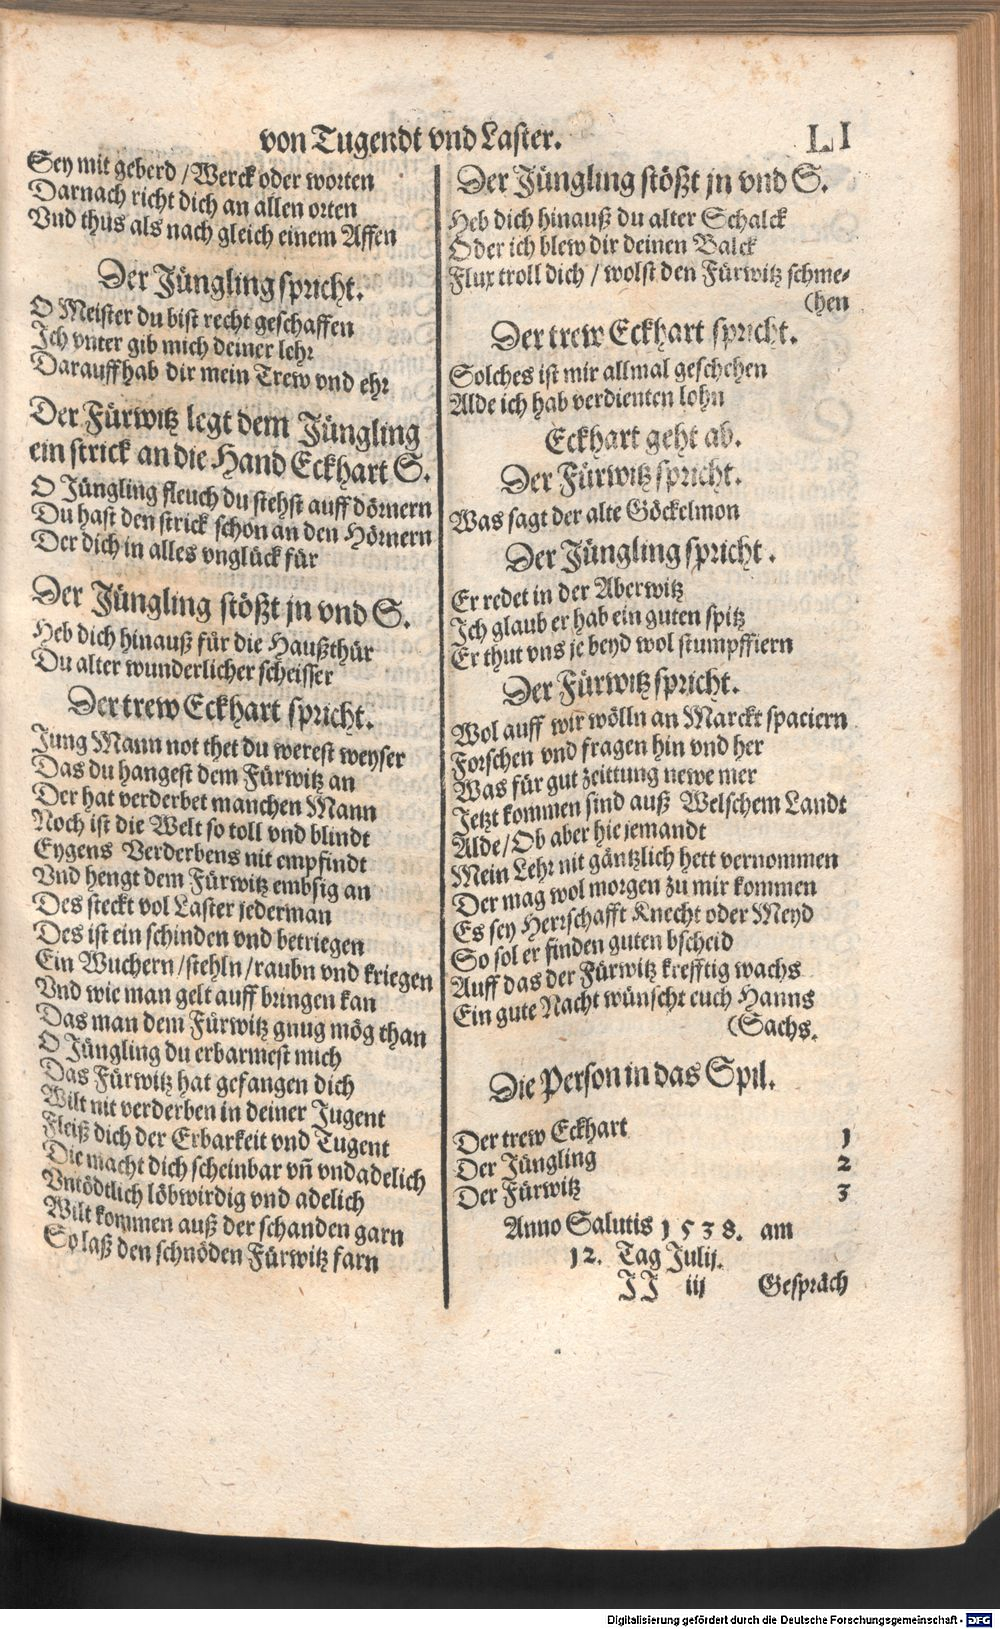 von Tugendt vnd Laster.
LI
Sey mit geberd / Werck oder worten
Darnach richt dich an allen orten
Vnd thus als nach gleich einem Affen
Der Jüngling spricht.
O Meister du bist recht geschaffen
Ich vnter gib mich deiner lehr
Darauff hab dir mein Trew vnd ehr
Der Fürwitz legt dem Jüngling
ein strick an die Hand Eckhart S.
O Jüngling fleuch du stehst auff dörnern
Du hast den strick schon an den Hörnern
Der dich in alles vnglück für
Der Jüngling stößt jn vnd S.
Heb dich hinauß für die Haußthür
Du alter wunderlicher scheisser
Der trew Eckhart spricht.
Jung Mann not thet du werest weyser
Das du hangest dem Fürwitz an
Der hat verderbet manchen Mann
Noch ist die Welt so toll vnd blindt
Eygens Verderbens nit empfindt
Vnd hengt dem Fürwitz embsig an
Des steckt vol Laster jederman
Des ist ein schinden vnd betriegen
Ein Wuchern / stehln / raubn vnd kriegen
Vnd wie man gelt auff bringen kan
Das man dem Fürwitz gnug mög than
O Jüngling du erbarmest mich
Das Fürwitz hat gefangen dich
Wilt nit verderben in deiner Jugent
Fleiß dich der Erbarkeit vnd Tugent
Die macht dich scheinbar vn̄ vndadelich
Vntödtlich löbwirdig vnd adelich
Wilt kommen auß der schanden garn
So laß den schnöden Fürwitz farn
Der Jüngling stößt jn vnd S.
Heb dich hinauß du alter Schalck
Oder ich blew dir deinen Balck
Flux troll dich / wolst den Fürwitz schme-
(hen
Der trew Eckhart spricht.
Solches ist mir allmal geschehen
Alde ich hab verdienten lohn
Eckhart geht ab.
Der Fürwitz spricht.
Was sagt der alte Göckelmon
Der Jüngling spricht.
Er redet in der Aberwitz
Ich glaub er hab ein guten spitz
Er thut vns je beyd wol stumpffiern
Der Fürwitz spricht.
Wol auff wir wölln an Marckt spaciern
Forschen vnd fragen hin vnd her
Was für gut zeittung newe mer
Jetzt kommen sind auß Welschem Landt
Alde / Ob aber hie jemandt
Mein Lehr nit gäntzlich hett vernommen
Der mag wol morgen zu mir kommen
Es sey Herrschafft Knecht oder Meyd
So sol er finden guten bscheid
Auff das der Fürwitz krefftig wachs
Ein gute Nacht wünscht euch Hanns
(Sachs.
Die Person in das Spil.
Der trew Eckhart 1
Der Jüngling 2
Der Fürwitz 3
Anno Salutis 1538. am
12. Tag Julij.
JJ iij Gespräch
Digitalisierung gefördert durch die Deutsche Forschungsgemeinschaft - DFG